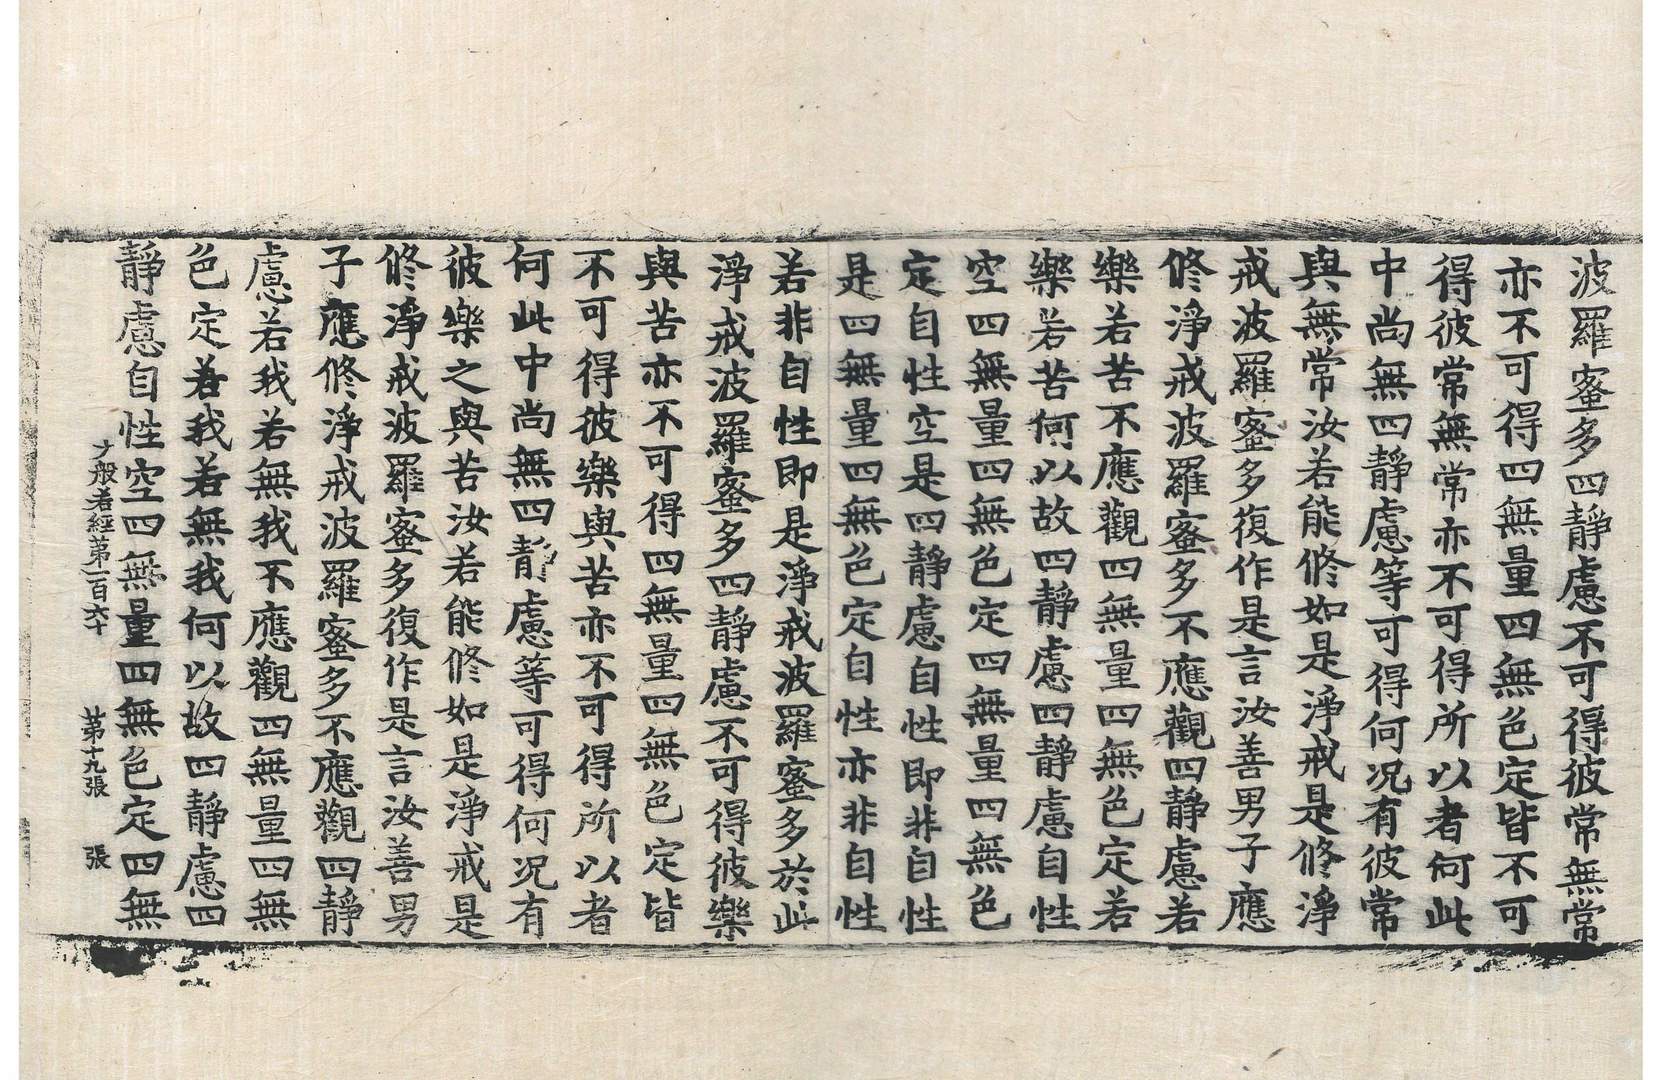 波羅蜜多四靜慮不可得彼常無常
亦不可得四無量四無色定皆不可
得彼常無常亦不可得所以者何此
中尚無四靜慮等可得何况有彼常
與無常汝若能修如是淨戒是修淨
戒波羅蜜多復作是言汝善男子應
修淨戒波羅蜜多不應觀四靜慮若
樂若苦不應觀四無量四無色定若
樂若苦何以故四靜慮四靜慮自性
空四無量四無色定四無量四無色
定自性空是四靜慮自性即非自性
是四無量四無色定自性亦非自性
若非自性即是淨戒波羅蜜多於此
淨戒波羅蜜多四靜慮不可得彼樂
與苦亦不可得四無量四無色定皆
不可得彼樂與苦亦不可得所以者
何此中尚無四靜慮等可得何况有
彼樂之與苦汝若能修如是淨戒是
修淨戒波羅蜜多復作是言汝善男
子應修淨戒波羅蜜多不應觀四靜
慮若我若無我不應觀四無量四無
色定若我若無我何以故四靜慮四
靜慮自性空四無量四無色定四無
大般若經第一百六十 第十九張 張